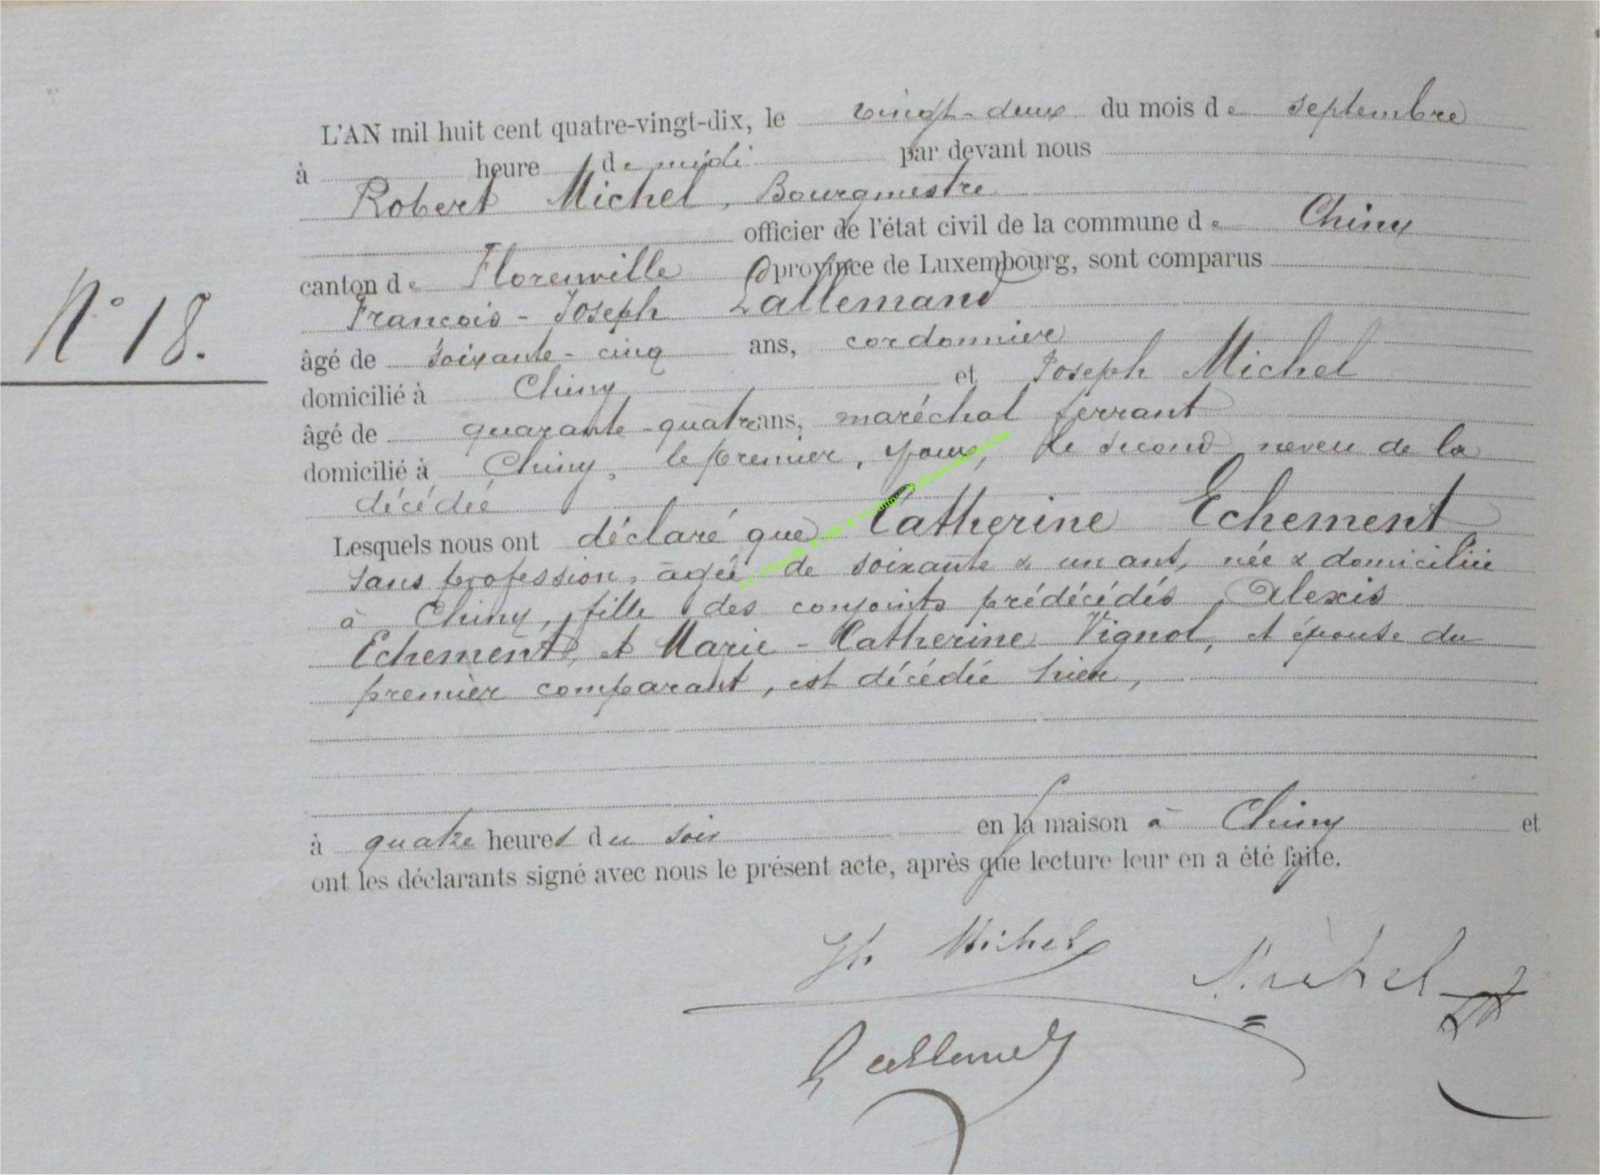 L'AN mil huit cent quatre-vingt-dix, le vingt-deux du mois de septembre
à heure de midi par devant nous
Robert Michel, Bourgmestre
officier de l'état civil de la commune de Chiny
canton de Florenville province de Luxembourg, sont comparus
François-Joseph Lallemand
âgé de soixante-cinq ans, cordonnier
domicilié à Chiny et Joseph Michel
âgé de quarante-quatre ans, maréchal ferrant
domicilié à Chiny, le premier, époux, le second neveu de la
décédée
N° 18.
Lesquels nous ont déclaré que Catherine Echement
sans profession, âgée de soixante & un ans, née & domiciliée
à Chiny, fille des conjoints prédécédés, Alexis
Echement, et Marie-Catherine Vignol, et épouse du
premier comparant, est décédée hier,
à quatre heures du soir en la maison à Chiny et
ont les déclarants signé avec nous le présent acte, après que lecture leur en a été faite.
Jh Michel
Michel
Lallemand